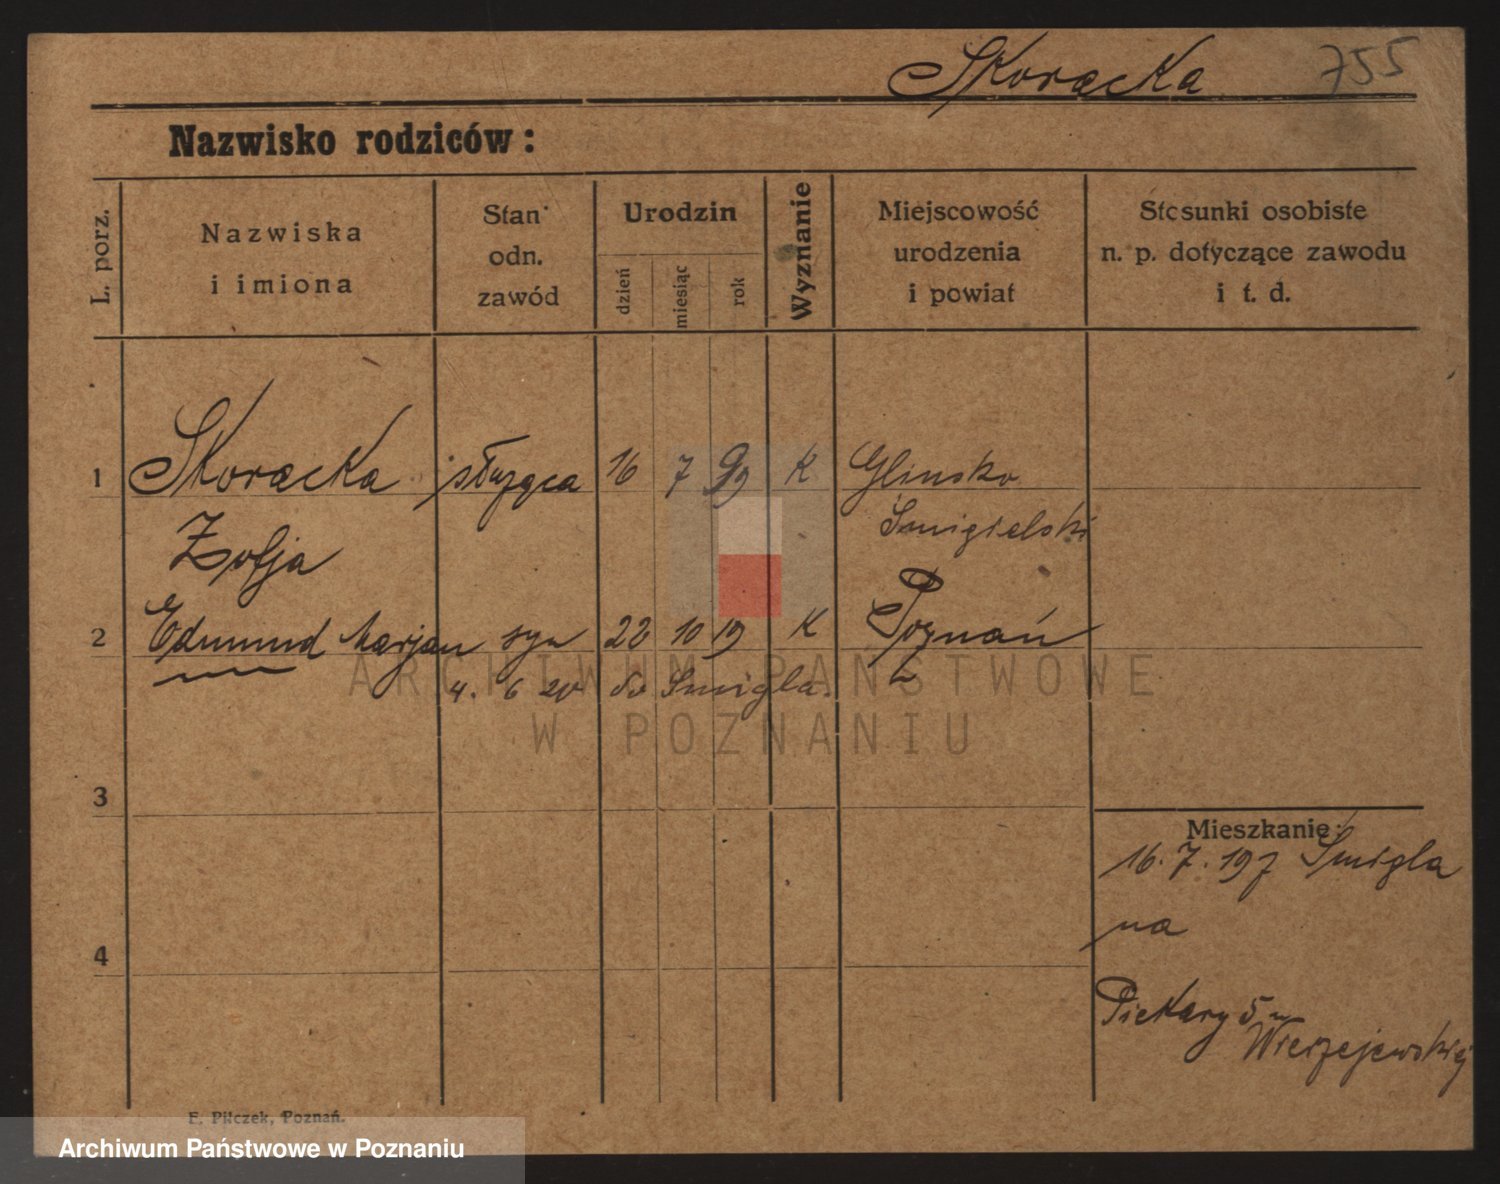 Skoracka 755
Nazwisko rodziców:
L. porz.
Nazwiska
i imiona
Stan
odn.
zawód
Urodzin
dzień
miesiąc
rok
Wyznanie
Miejscowość
urodzenia
i powiat
Stosunki osobiste
n. p. dotyczące zawodu
i t. d.
1 Skoracka służąca 16 7 99 K Glinsko
Śmigielski
Zofja
2 Edmund Marjan syn 22 10 19 K Poznań
4. 6 20 do Śmigla.
ARCHIWUM PAŃSTWOWE
W POZNANIU
3
Mieszkanie:
16. 7. 19 z Śmigla
na
4
Piekary 5 u
Wierzejewskiej
F. Pilczek, Poznań.
Archiwum Państwowe w Poznaniu